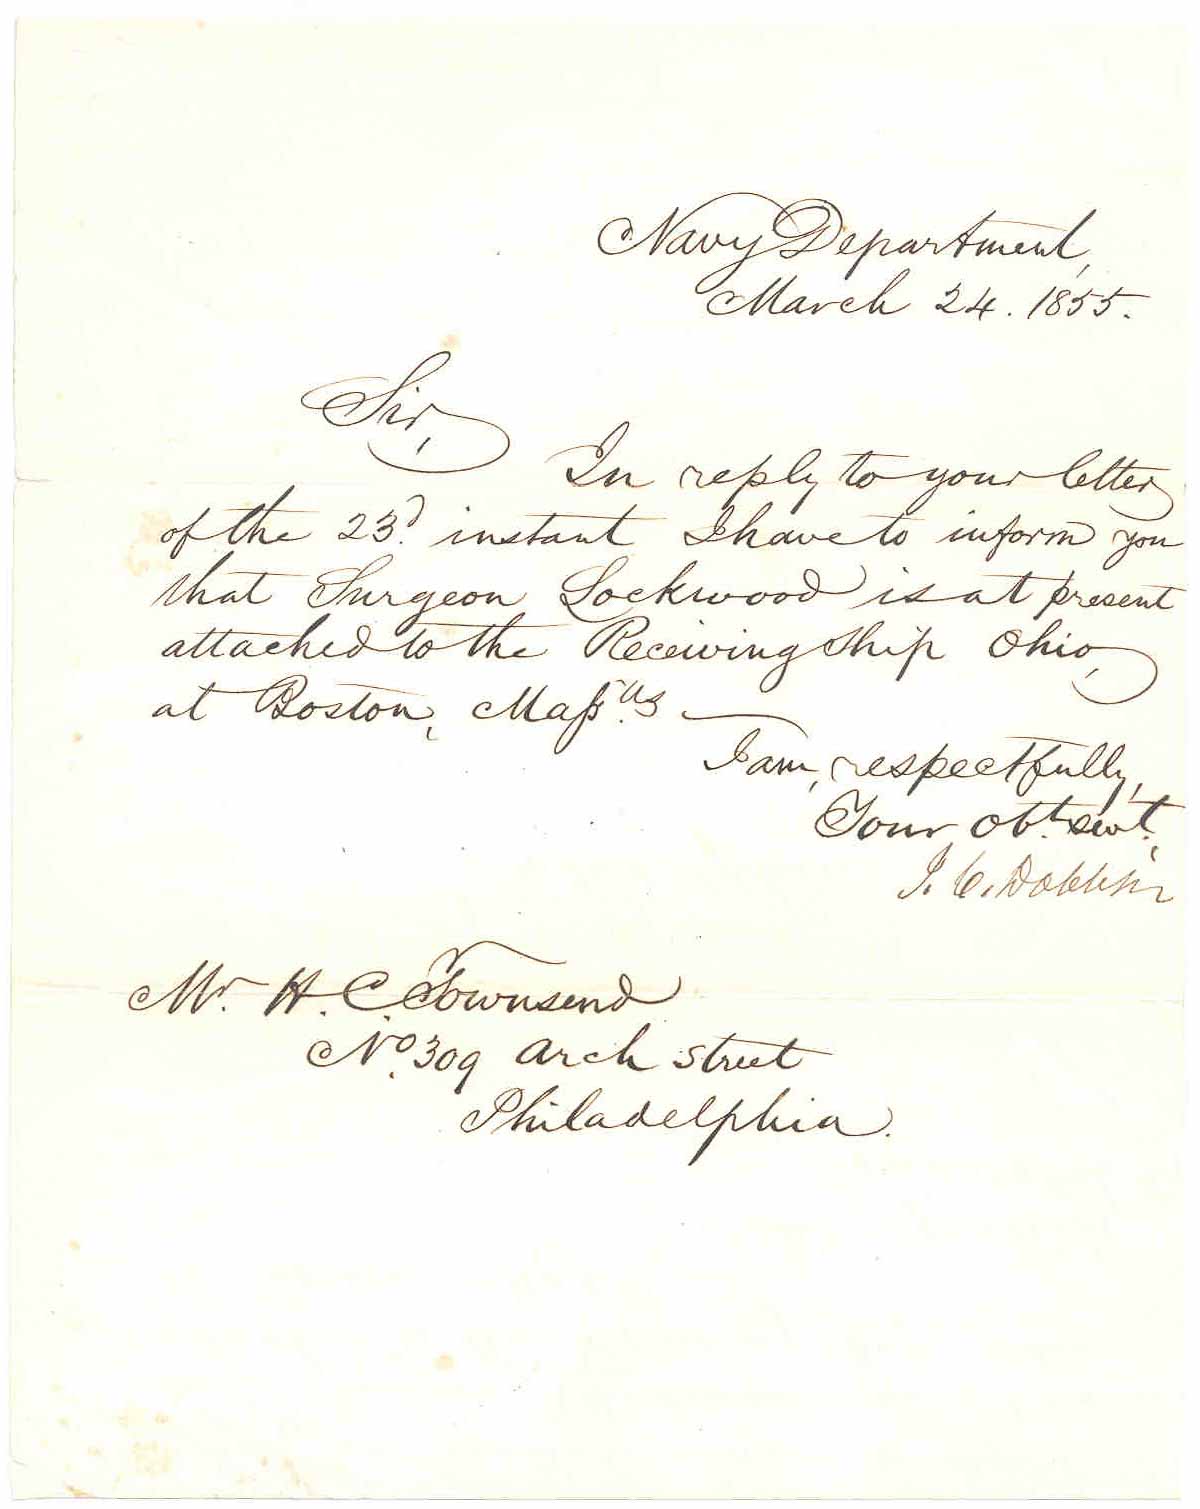 Navy Department,
March 24. 1855.
Sir,
In reply to your letter
of the 23d. instant I have to inform you
that Surgeon Lockwood is at present
attached to the Receiving Ship Ohio,
at Boston, Masstts
I am, respectfully,
Your obt. servt.,
J. C. Dobbin
Mr. H. C. Townsend
No. 309 Arch Street
Philadelphia.